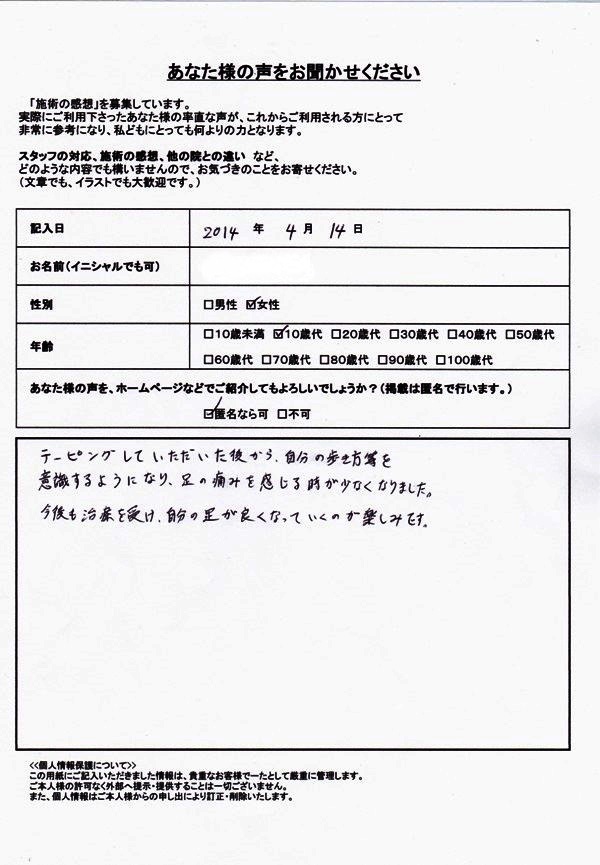 あなた様の声をお聞かせください
「施術の感想」を募集しています。
実際にご利用下さったあなた様の率直な声が、これからご利用される方にとって
非常に参考になり、私どもにとっても何よりの力となります。
スタッフの対応、施術の感想、他の院との違い など、
どのような内容でも構いませんので、お気づきのことをお寄せください。
（文章でも、イラストでも大歓迎です。）
記入日 2014 年 4 月 14 日
お名前（イニシャルでも可）
性別 □男性 ☑女性
年齢 □10歳未満 ☑10歳代 □20歳代 □30歳代 □40歳代 □50歳代
□60歳代 □70歳代 □80歳代 □90歳代 □100歳代
あなた様の声を、ホームページなどでご紹介してもよろしいでしょうか？（掲載は匿名で行います。）
☑匿名なら可 □不可
テーピングしていただいた後から、自分の歩き方等を
意識するようになり、足の痛みを感じる時が少なくなりました。
今後も治療を受け、自分の足が良くなっていくのが楽しみです。
<<個人情報保護について>>
この用紙にご記入いただきました情報は、貴重なお客様データとして厳重に管理します。
ご本人様の許可なく外部へ提示・提供することは一切ございません。
また、個人情報はご本人様からの申し出により訂正・削除いたします。